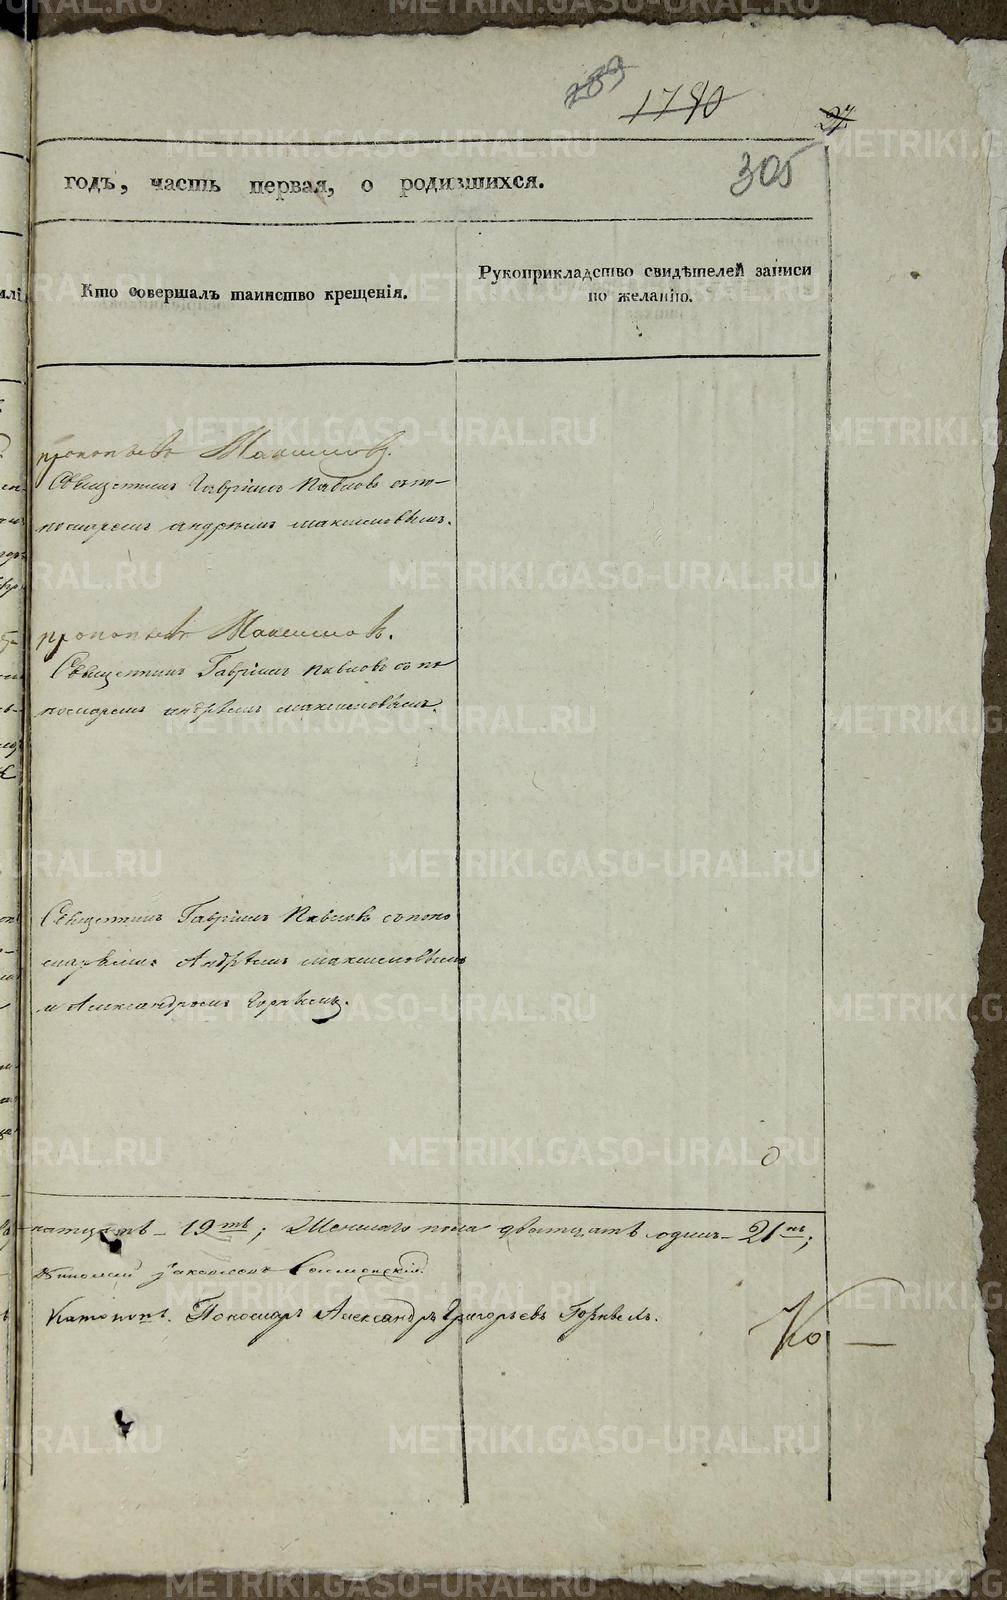 289
1780
27
305
годъ, часть первая, о родившихся.
Кто совершалъ таинство крещенія.
Рукоприкладство свидѣтелей записи
по желанію.
прокопьевъ Максимовъ.
Священникъ Гавріилъ Павловъ съ по-
номаремъ андрѣемъ максимовымъ.
прокопьевъ Максимовъ.
Священникъ Гавріилъ Павловъ съ по
номаремъ андрѣемъ максимовымъ.
Священникъ Гавріилъ Павловъ съ поно
маремъ Андрѣемъ максимовымъ
и Александромъ
19ть; Женскаго пола дватцать одинъ - 21нъ;
Пономарь Александръ Григорьевъ
Ко —
METRIKI.GASO-URAL.RU